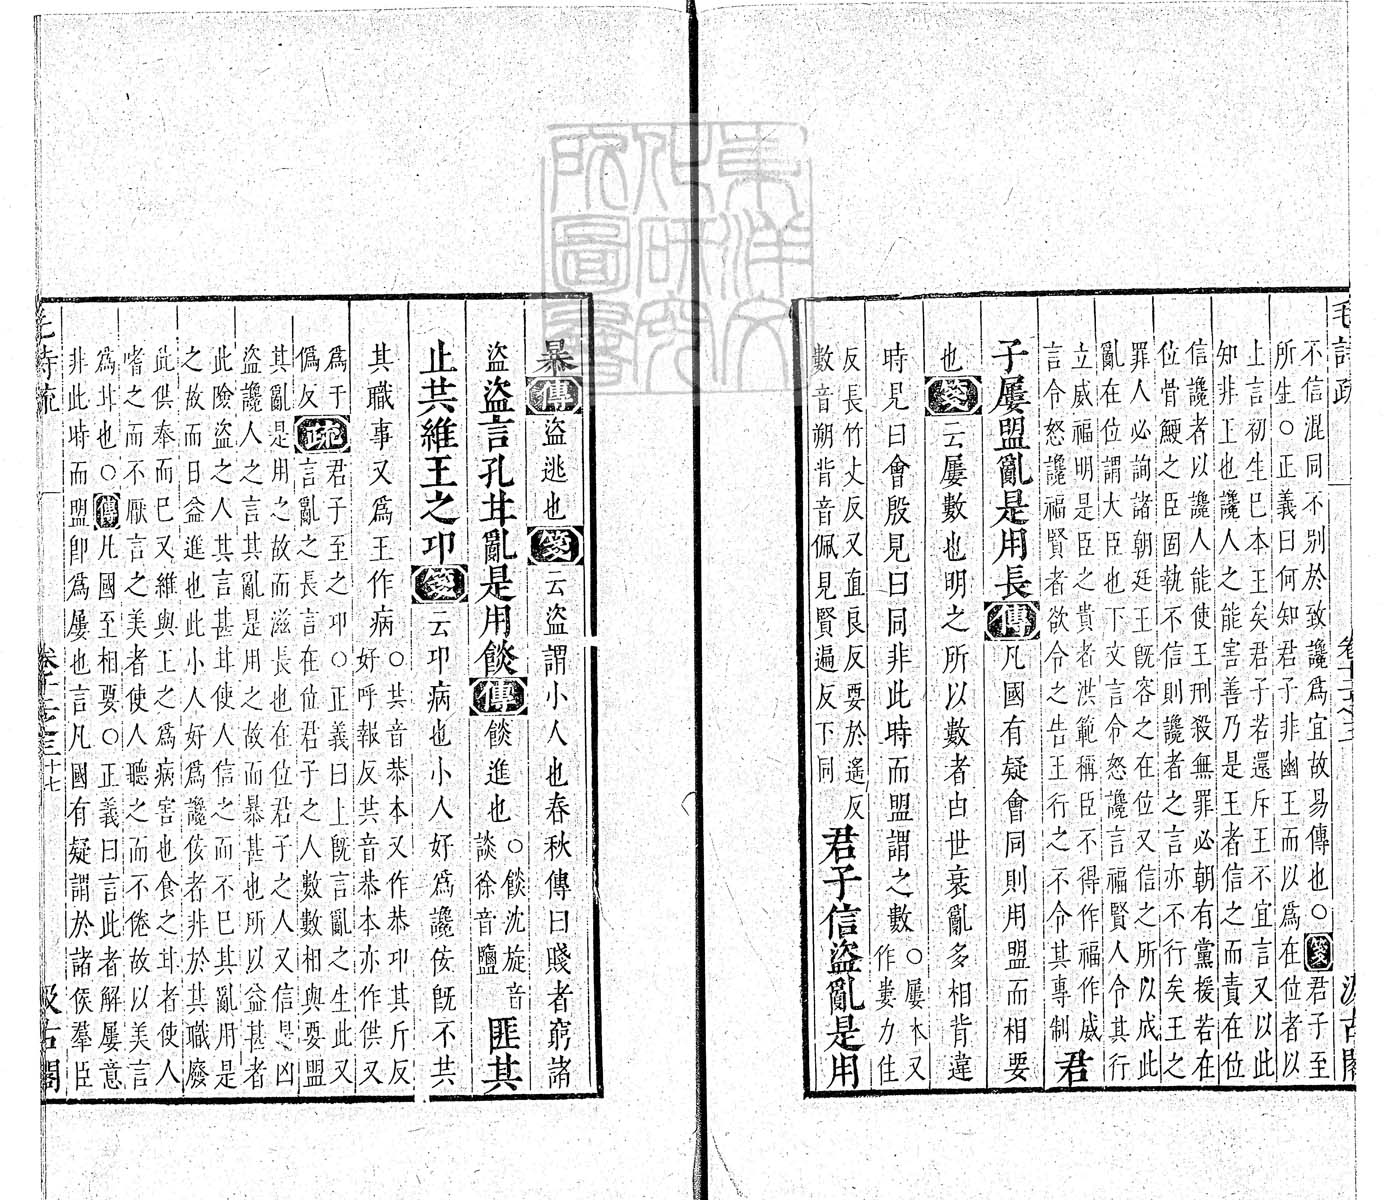 毛詩疏
卷十二之三
汲古閣
不信混同不別於致讒爲宜故易傳也○箋君子至
所生○正義曰何知君子非幽王而以爲在位者以
上言初生已本王矣君子若還斥王不宜言又以此
知非王也讒人之能害善乃是王者信之而責在位
信讒者以讒人能使王刑殺無罪必朝有黨援若在
位骨鯁之臣固執不信則讒者之言亦不行矣王之
罪人必詢諸朝廷王既容之在位又信之所以成此
亂在位謂大臣也下文言令怒讒言福賢人令其行
立威福明是臣之貴者洪範稱臣不得作福作威
言令怒讒福賢者欲令之告王行之不令其專制 君
子屢盟亂是用長傳凡國有疑會同則用盟而相要
也箋云屢數也明之所以數者由世衰亂多相背違
時見曰會殷見曰同非此時而盟謂之數○屢本又
作婁力住
反長竹丈反又直良反要於遙反
數音朔背音佩見賢遍反下同
君子信盜亂是用
暴傳盜逃也箋云盜謂小人也春秋傳曰賤者窮諸
盜盜言孔甘亂是用餤傳餤進也○餤沈旋音
談徐音鹽
匪其
止共維王之卭箋云卭病也小人好爲讒佞既不共
其職事又爲王作病○共音恭本又作恭卭其斤反
好呼報反共音恭本亦作供又
爲于
僞反疏君子至之卭○正義曰上既言亂之生此又
言亂之長言在位君子之人數數相與要盟
其亂是用之故而滋長也在位君子之人又信是凶
盜讒人之言其亂是用之故而暴甚也所以益甚者
此險盜之人其言甚甘使人信之而不已其亂用是
之故而日益進也此小人好爲讒佞者非於其職廢
此供奉而已又維與王之爲病害也食之甘者使人
嗜之而不厭言之美者使人聽之而不倦故以美言
爲甘也○傳凡國至相要○正義曰言此者解屢意
非此時而盟卽爲屢也言凡國有疑謂於諸侯羣臣
毛詩疏
卷十二之三
十七
汲古閣
東洋文化研究所圖書